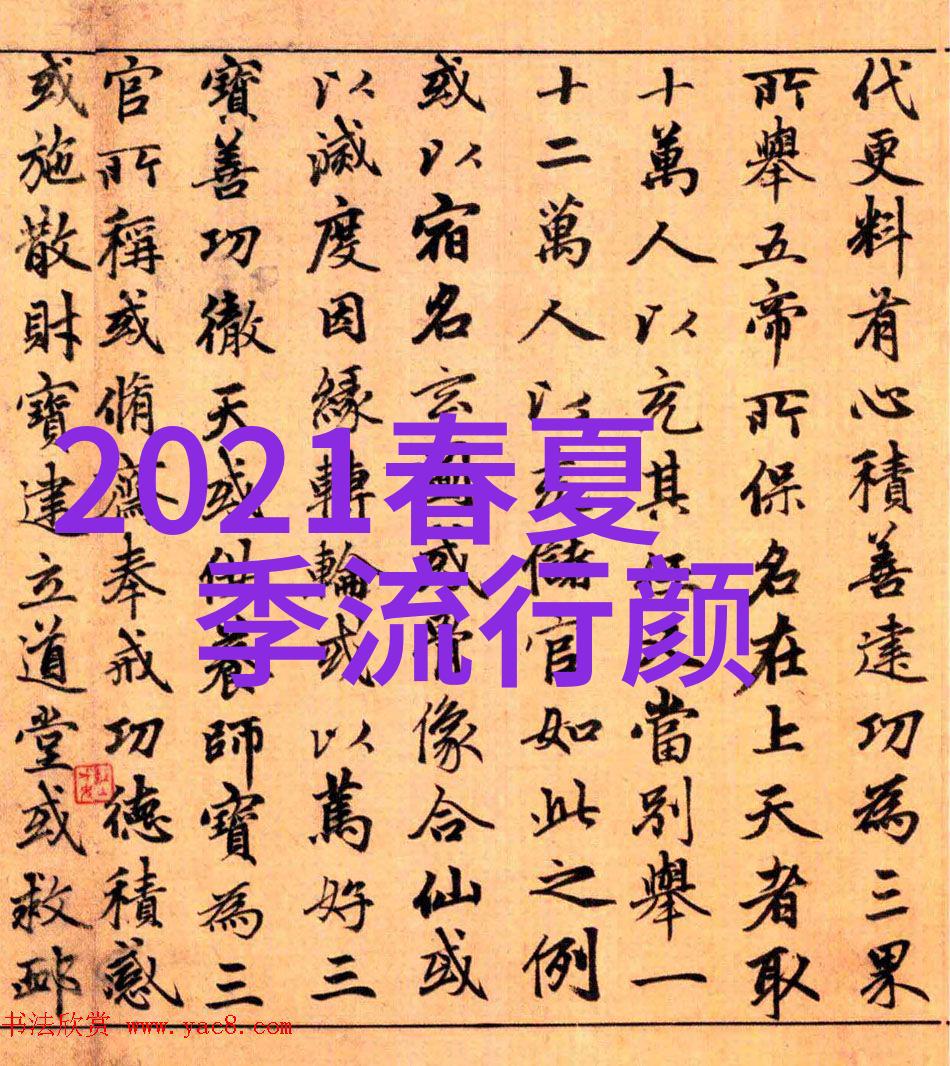 代更料有心積善建功為三果
所舉五帝所保名在上天者取
十萬人以充其又當別舉一
十二萬人以充儲官如此之例
或以宿名玄圖或骨像合仙或
以滅度因緣轉輪或以篤好三
寶善功徹天或供養師寶為三
官所稱或脩齋奉戒功德積感
或施散財寶建立道堂或救
2021春夏
季流行颜
书法欣赏 www.yac8.com